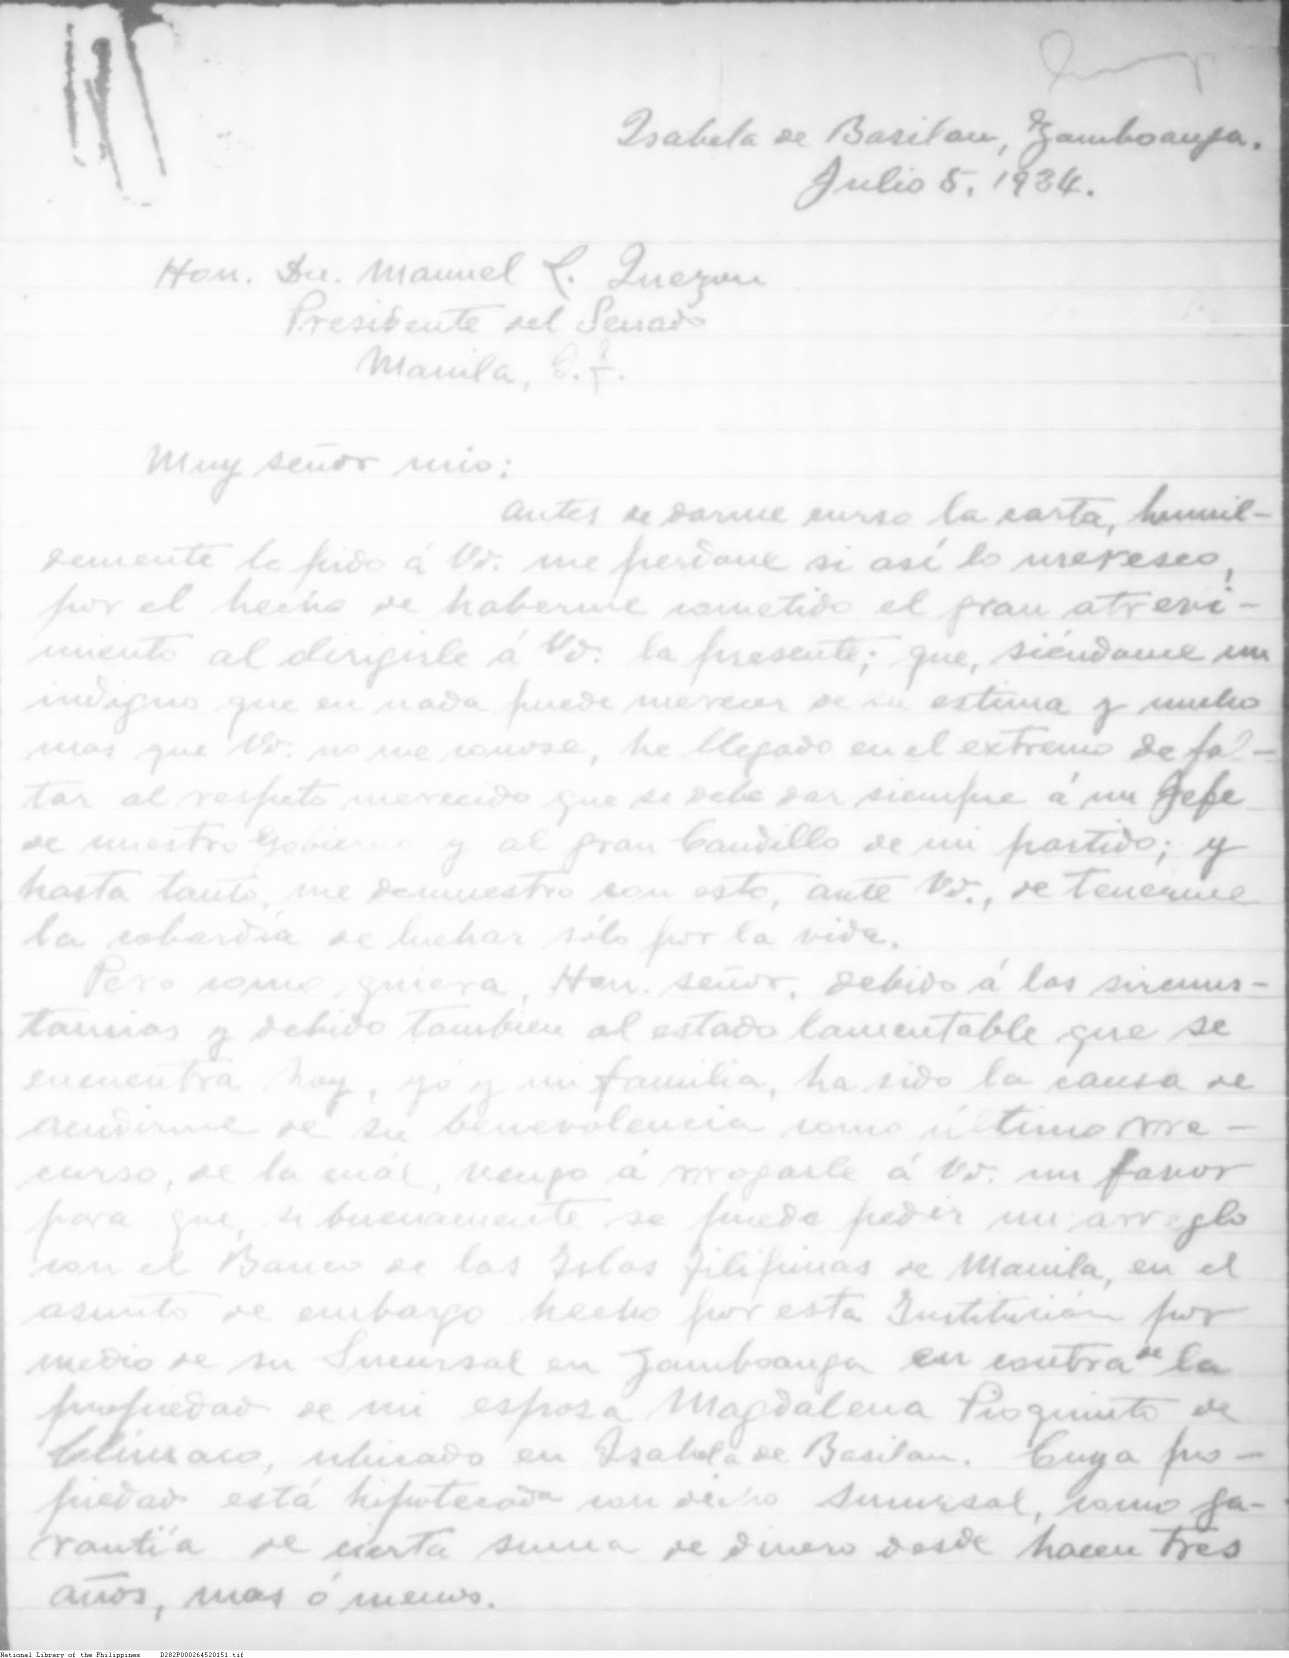 Isabela de Basilan, Zamboanga.
Julio 5, 1934.
Hon. Dn. Manuel L. Quezon
Presidente del Senado
Manila, I.F.
Muy señor mio:
Antes de darme curso la carta, humil-
demente le pido á Vd. me perdone si así lo meresco,
por el hecho de haberme cometido el gran atrevi-
miento al dirigirle á Vd. la presente; que, siéndome un
indigno que en nada puede merecer de su estima y mucho
mas que Vd. no me conose, he llegado en el extremo de fal-
tar al respeto merecido que se debe dar siempre á un Jefe
de nuestro Gobierno y al gran Caudillo de mi partido; y
hasta tanto, me demuestro con esto, ante Vd., de tenerme
la cobardía de luchar sólo por la vida.
Pero como quiera, Hon. señor, debido á las sircuns-
tancias y debido tambien al estado lamentable que se
encuentra hoy, yo y mi familia, ha sido la causa de
acudirme de su benevolencia como último rre-
curso, de la cuál, vengo á rrogarle á Vd. un favor
para que, si buenamente se puede pedir un arreglo
con el Banco de las Islas Filipinas de Manila, en el
asunto de embargo hecho por esta Institución por
medio de su Sucursal en Zamboanga en contra de la
propiedad de mi esposa Magdalena Pioquinto de
Climaco, ubicado en Isabela de Basilan. Cuya pro-
piedad está hipotecada con dicho sucursal, como ga-
rantía de cierta suma de dinero desde hacen tres
años, mas ó menos.
National Library of the Philippines D282P000264520151.tif